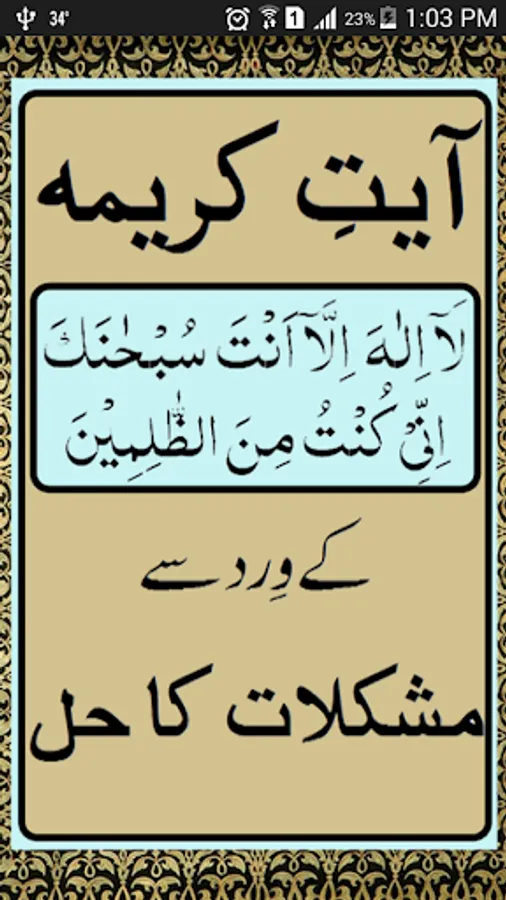 34°
1 23% 1:03 PM
آیتِ کریمہ
لَآ اِلٰهَ اِلَّآ اَنْتَ سُبْحٰنَكَ
اِنِّیْ كُنْتُ مِنَ الظّٰلِمِیْنَ
کے وِرد سے
مشکلات کا حل